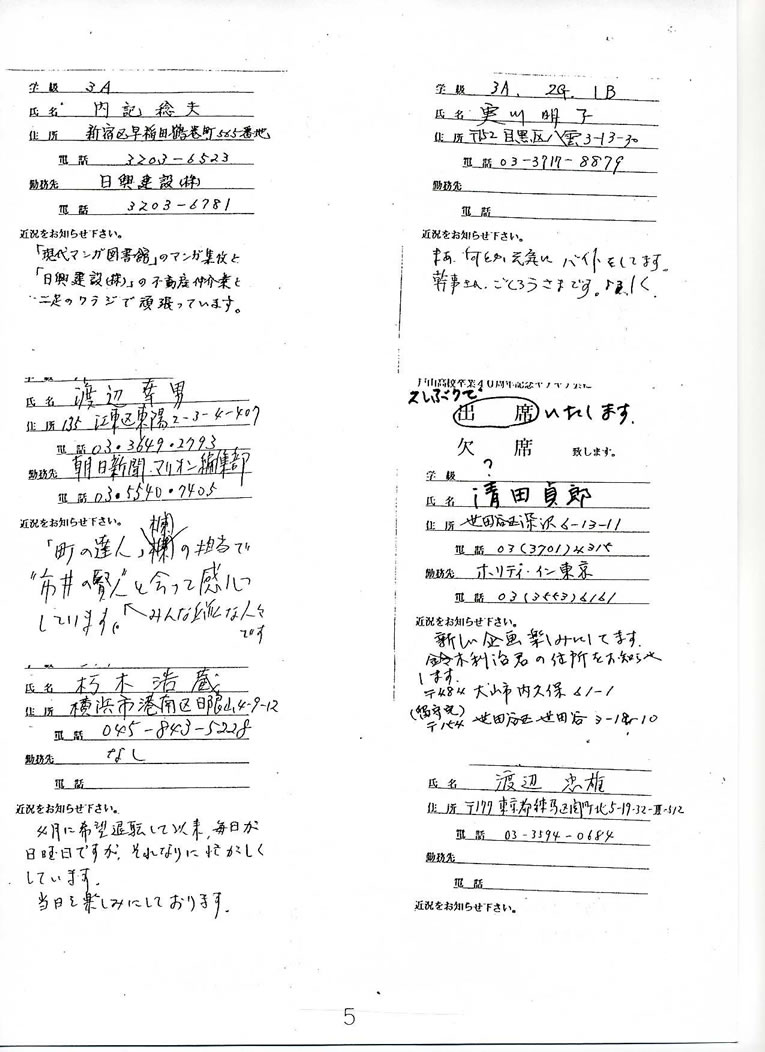 学級 3A
氏名 内記稔夫
住所 新宿区早稲田鶴巻町565番地
電話 3203-6523
勤務先 日興建設(株)
電話 3203-6781
近況をお知らせ下さい。
「現代マンガ図書館」のマンガ集收と
「日興建設(株)」の不動産仲介業と
二足のワラジで頑張っています。
氏名 渡辺幸男
住所 135 江東区東陽2-3-4-407
電話 03・3649・2793
勤務先 朝日新聞・マリオン編集部
電話 03・5540・7405
近況をお知らせ下さい。
「町の達人」欄の担当で
"市井の賢人"と会って感心
しています。←みんな身近な人々
です
氏名 朽木浩蔵
住所 横浜市港南区日限山4-9-12
電話 045-843-5228
勤務先 なし
電話
近況をお知らせ下さい。
4月に希望退職して以来、毎日が
日曜日ですが、それなりに忙がしく
しています。
当日を楽しみにしております。
学級 3A. 2G. 1B
氏名 実川明子
住所 〒152 目黒区八雲3-13-30
電話 03-3717-8879
勤務先
電話
近況をお知らせ下さい。
まあ、何とか元気に バイトをしてます。
幹事さん、ごくろうさまです。よろしく
戸山高校卒業40周年記念
久しぶりで
出席 いたします。
欠席 致します。
学級 ?
氏名 清田貞郎
住所 世田谷区深沢6-13-11
電話 03(3701)4315
勤務先 ホリディ・イン東京
電話 03(3553)6161
近況をお知らせ下さい。
新しい企画楽しみにしてます。
鈴木利治君の住所をお知らせ
します。
〒484 犬山市内久保61-1
(留守宅)
〒154 世田谷区世田谷3-18-10
氏名 渡辺忠雄
住所 〒177 東京都練馬区関町北5-19-32-Ⅲ-512
電話 03-3594-0684
勤務先
電話
近況をお知らせ下さい。
5